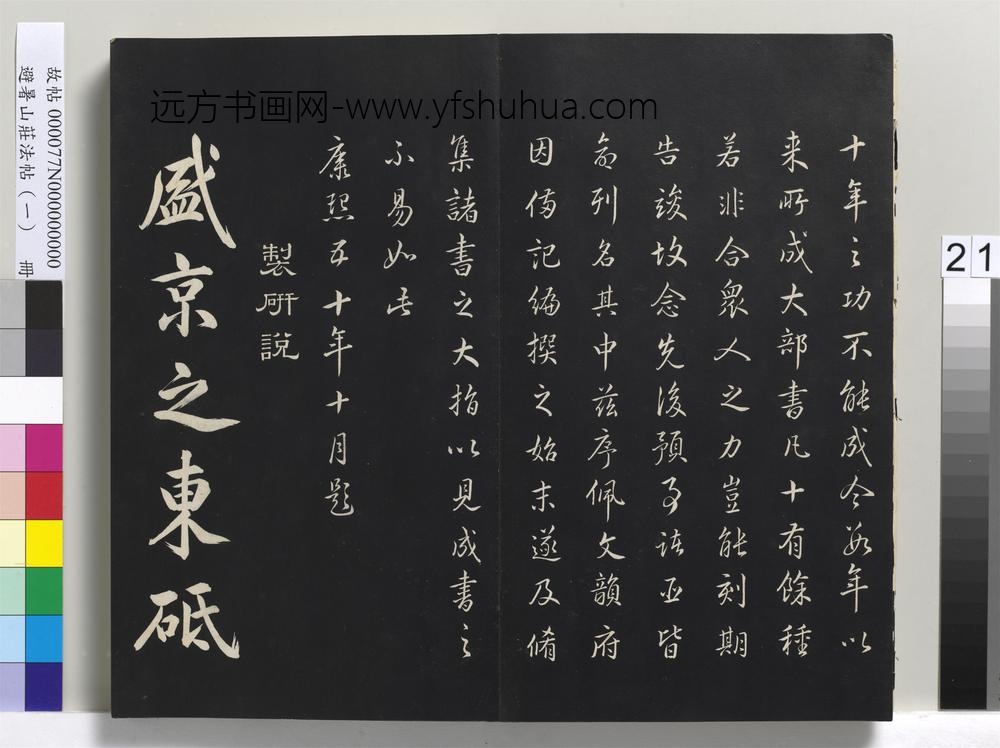 远方书画网-www.yfshuhua.com
十年之功不能成今数年以
来所成大部书凡十有餘種
若非合眾人之力豈能刻期
告竣故念先後預事諸臣皆
命列名其中兹序佩文韻府
因備記編撰之始末遂及脩
集諸書之大指以見成書之
不易如此
康熙五十年十月題
製硏說
盛京之東砥
故帖000077N000000000
避暑山莊法帖(一) 冊
21